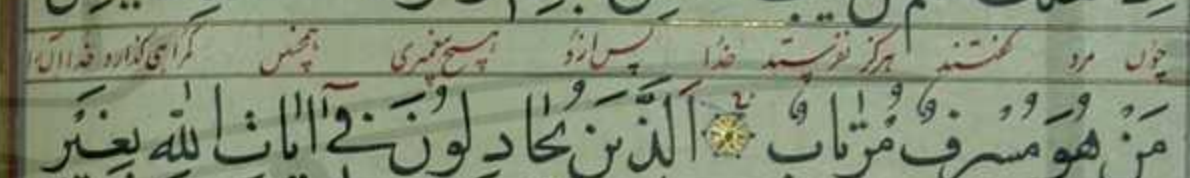 چون مرد گفتند هرگز نفرستد خدا پس ازو هیچ پیغمبری همچنین گمراهی گذارد خدا آن
مَنْ هُوَ مُسْرِفٌ مُرْتَابٌ الَّذِينَ يُجَادِلُونَ فِي آيَاتِ اللَّهِ بِغَيْرِ